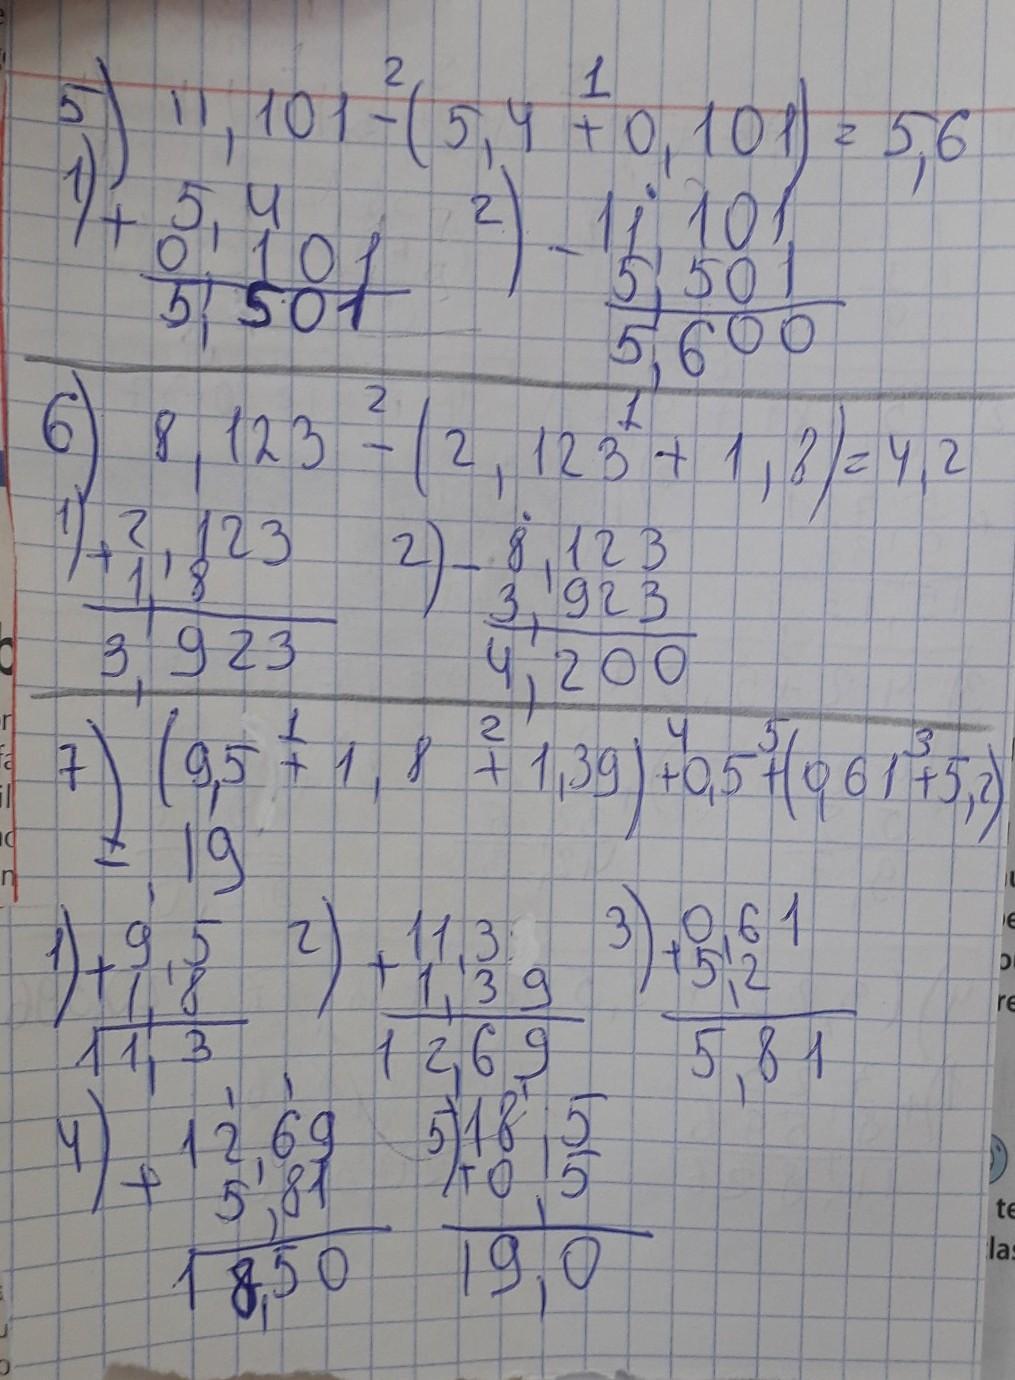 5) 11,101 - (5,4 + 0,101) = 5,6
2 1
1) + 5,4
0,101
5,501
2) - 11,101
5,501
5,600
6) 8,123 - (2,123 + 1,8) = 4,2
2 1
1) + 2,123
1,8
3,923
2) - 8,123
3,923
4,200
7) (9,5 + 1,8 + 1,39) + 0,5 + (0,61 + 5,2)
1 2 4 5 3
= 19
1) + 9,5
1,8
11,3
2) + 11,3
1,39
12,69
3) + 0,61
5,2
5,81
4) + 12,69
5,81
18,50
5) 18,5
+ 0,5
19,0
te